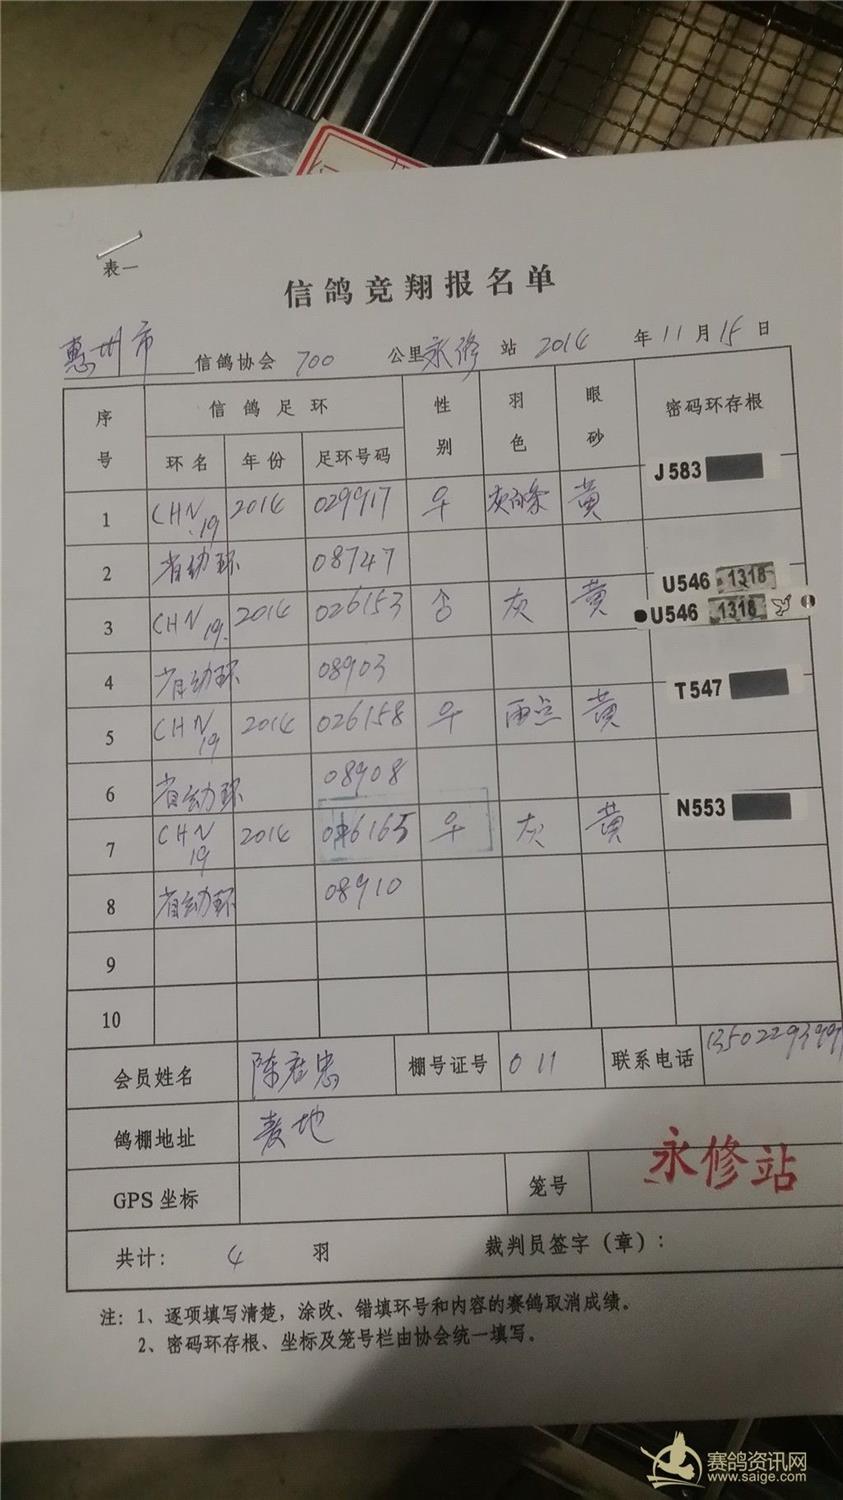 表一
信鸽竞翔报名单
惠州市 信鸽协会 700 公里 永修 站 2014 年 11 月 15 日
序号 信鸽足环 性别 羽色 眼砂 密码环存根
环名 年份 足环号码
J583
1 CHN 19 2014 029917 ♀ 黄
2 省动环 08747
U546 1318
3 CHN 19 2014 026153 ♂ 灰 黄 U546 1318
4 省动环 08903
T547
5 CHN 19 2014 026158 ♀ 雨点 黄
6 省动环 08908
N553
7 CHN 19 2014 6165 ♀ 灰 黄
8 省动环 08910
9
10
会员姓名 陈君忠 棚号证号 011 联系电话
鸽棚地址 麦地
GPS 坐标 笼号 永修站
共计: 4 羽 裁判员签字(章):
注: 1、逐项填写清楚,涂改、错填环号和内容的赛鸽取消成绩。
2、密码环存根、坐标及笼号栏由协会统一填写。
赛鸽资讯网
www.saige.com